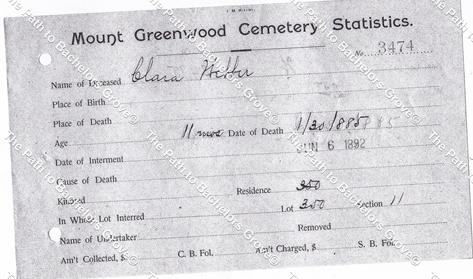 Mount Greenwood Cemetery Statistics.
No. 3474
Name of Deceased Clara
Place of Birth
Place of Death
Age 11 mos Date of Death 1/30/1885
Date of Interment JUN 6 1892
Cause of Death
Kindred Residence 350
In Whose Lot Interred Lot 350 Section 11
Name of Undertaker Removed
Am't Collected, $ C. B. Fol. Am't Charged, $ S. B. Fol.
The Path to Bachelors Grove©